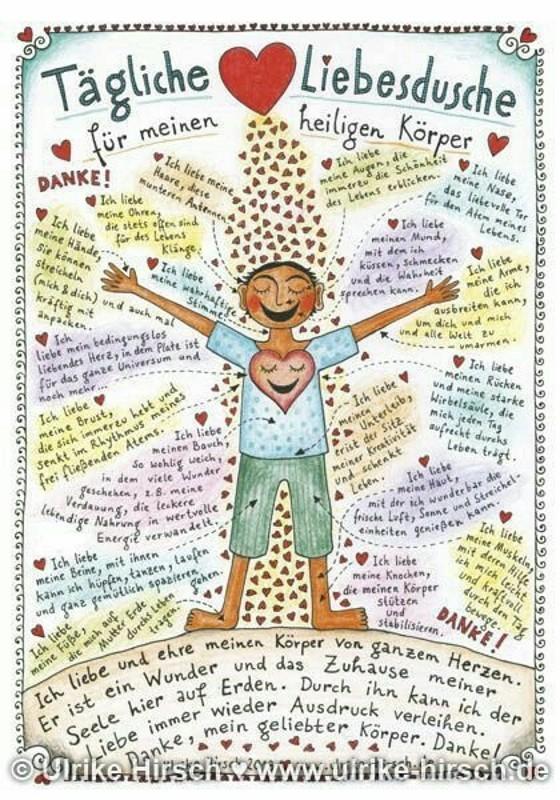 Tägliche Liebesdusche
für meinen heiligen Körper
DANKE!
Ich liebe meine
Haare, diese
munteren Antennen.
Ich liebe
meine Augen, die
immerzu die Schönheit
des Lebens erblicken.
Ich liebe
meine Nase,
das liebevolle Tor
für den Atem meines
Lebens.
Ich liebe
meine Ohren,
die stets offen sind
für des Lebens
Klänge.
Ich liebe
meine Hände,
Sie können
streicheln
(mich & dich)
und auch mal
kräftig mit
anpacken.
Ich liebe
meine wahrhaftige
Stimme.
Ich liebe
meinen Mund,
mit dem ich
küssen, schmecken
und die Wahrheit
sprechen kann.
Ich liebe
meine Arme,
die ich
ausbreiten kann,
um dich und mich
und alle Welt zu
umarmen.
Ich
liebe mein bedingungslos
liebendes Herz, in dem Platz ist
für das ganze Universum und
noch mehr...
Ich liebe
meinen Rücken
und meine starke
Wirbelsäule, die
mich jeden Tag
aufrecht durchs
Leben trägt.
Ich liebe
meine Brust,
die sich immerzu hebt und
senkt im Rhythmus meines
frei fließenden Atems.
Ich liebe
meinen Bauch,
so wohlig weich,
in dem viele Wunder
geschehen, z.B. meine
Verdauung, die leckere
lebendige Nahrung in wertvolle
Energie verwandelt.
Ich liebe
meinen
Unterleib,
er ist der Sitz
meiner Kreativität
und schenkt
Leben.
Ich liebe
meine Haut,
mit der ich wunderbar die
frische Luft, Sonne und Streichel-
einheiten genießen kann.
Ich liebe
meine Muskeln,
mit deren Hilfe
ich mich leicht
und kraftvoll
durch den Tag
bewege.
Ich liebe
meine Beine, mit ihnen
kann ich hüpfen, tanzen, laufen
und ganz gemütlich spazieren
gehen.
Ich liebe
meine Knochen,
die meinen Körper
stützen
und
stabilisieren.
Ich liebe
meine Füße,
die mich auf
Mutter Erde
durchs Leben
tragen.
DANKE!
Ich liebe und ehre meinen Körper von ganzem Herzen.
Er ist ein Wunder und das Zuhause meiner
Seele hier auf Erden. Durch ihn kann ich der
Liebe immer wieder Ausdruck verleihen.
Danke, mein geliebter Körper. Danke!
© Ulrike Hirsch www.ulrike-hirsch.de